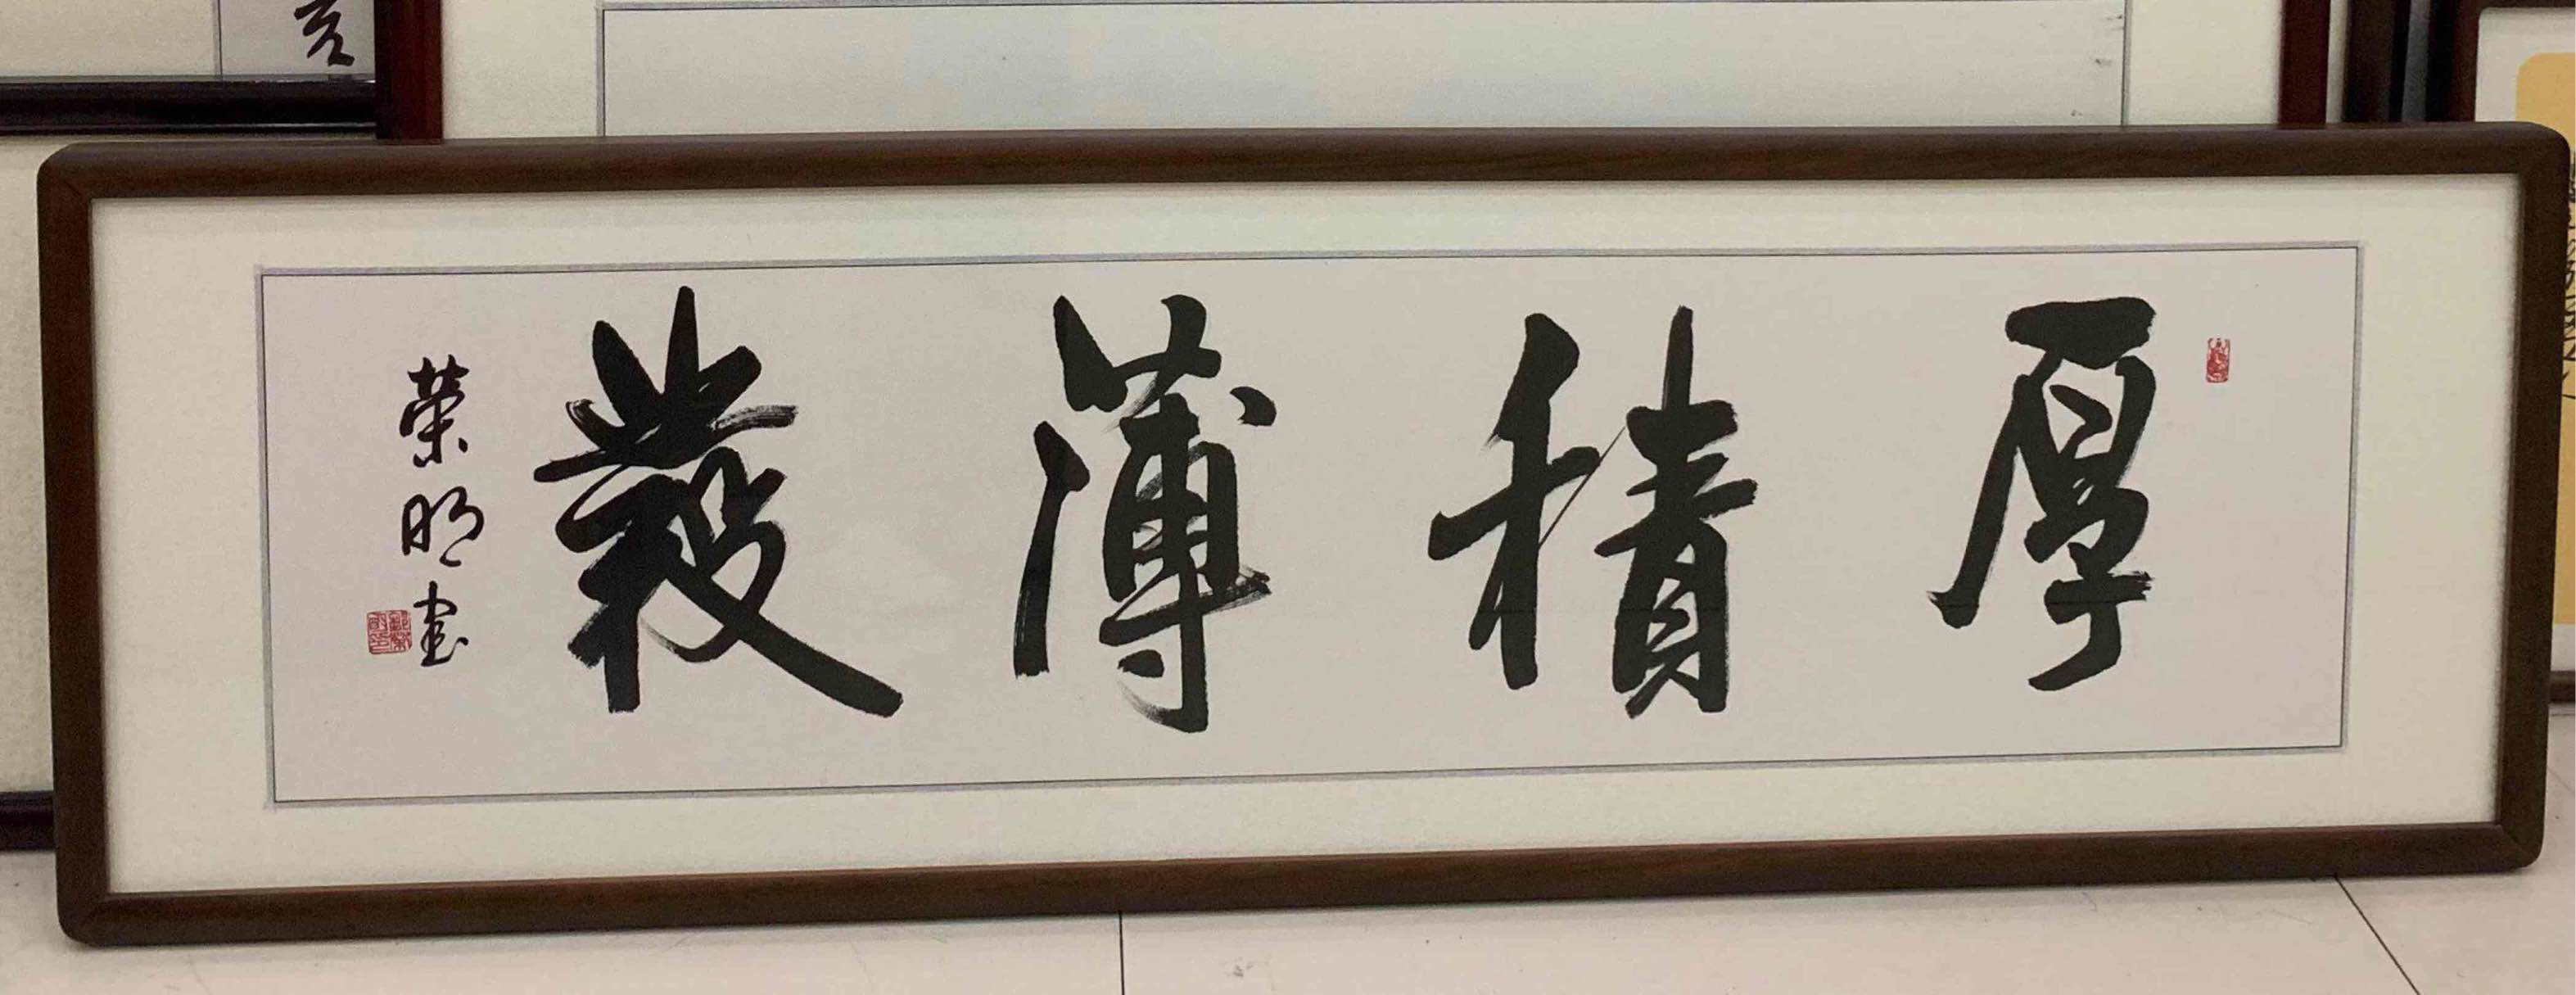 厚積薄發
榮明書